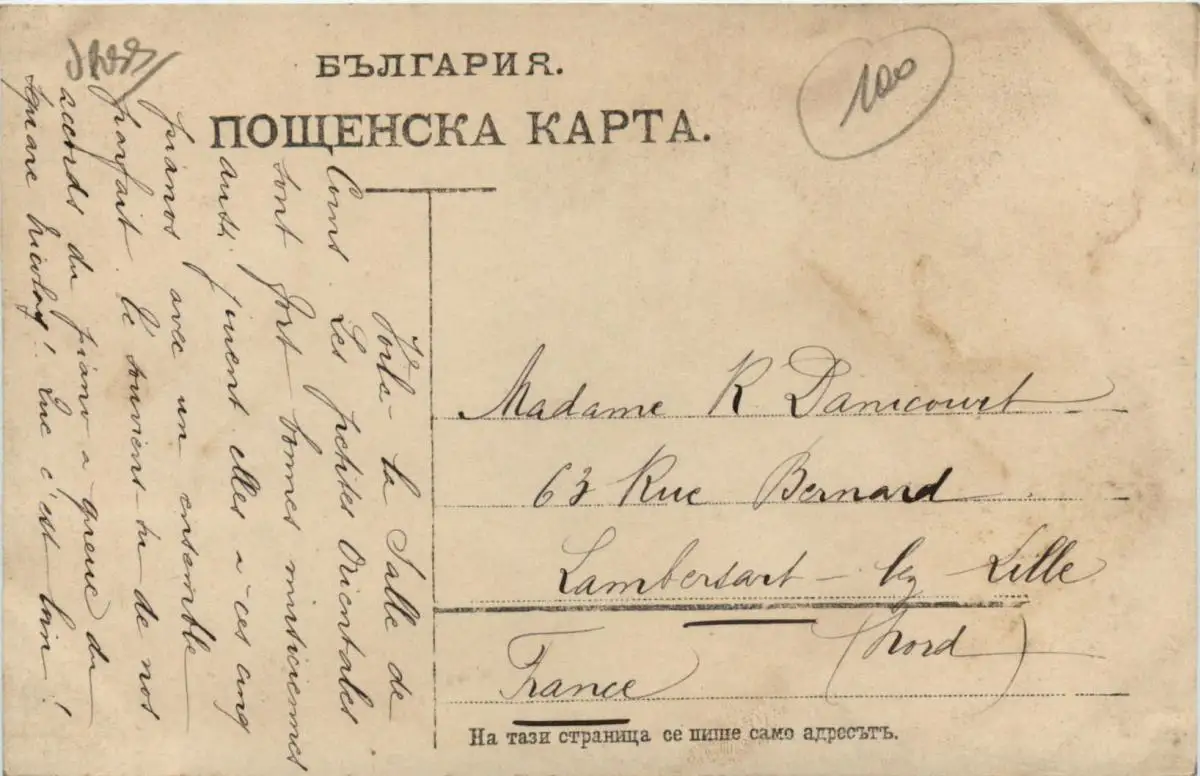 БЪЛГАРИЯ.
ПОЩЕНСКА КАРТА.
100
Voila - la Salle de
Cours. Les petites Orientales
sont fort bonnes musiciennes
aussi jouent elles a - ces cinq
pianos avec un ensemble
parfait. Te souviens-tu de nos
accords du piano a queue du
square Nicolay! Que c'est loin!
Madame R Danicourt
63 Rue Bernard
Lambersart - lez - Lille
(Nord)
France
На тази страница се пише само адресътъ.